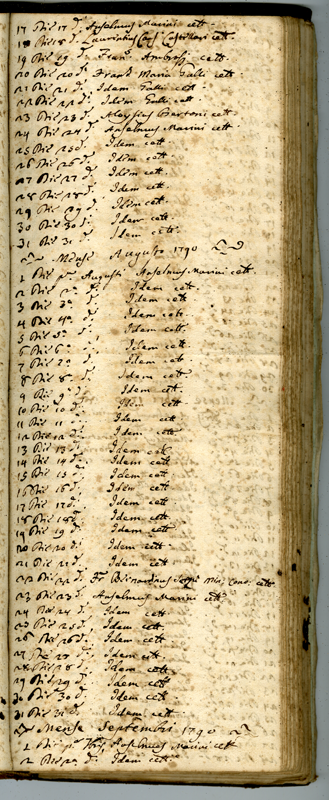 17 Die 17 d.ⁱ Anselmus Marini cett.
18 Die 18 d.ⁱ Laurentius cett.
19 Die 19 d.ⁱ Fran.ˢ Ambrosj cett.
20 Die 20 d.ⁱ Fran.ˢ Maria Galli cett.
21 Die 21 d.ⁱ Idem Galli cett.
22 Die 22 d.ⁱ Idem Galli cett.
23 Die 23 d.ⁱ Aloysius Bartoni cett.
24 Die 24 d.ⁱ Anselmus Marini cett.
25 Die 25 d.ⁱ Idem cett.
26 Die 26 d.ⁱ Idem cett.
27 Die 27 d.ⁱ Idem cett.
28 Die 28 d.ⁱ Idem cett.
29 Die 29 d.ⁱ Idem cett.
30 Die 30 d.ⁱ Idem cett.
31 Die 31 d.ⁱ Idem cett.
Mense Augusto 1790
1 Die p.ᵃ Augusti Anselmus Marini cett.
2 Die 2.ᵃ d.ⁱ Idem cett.
3 Die 3.ᵃ d.ⁱ Idem cett.
4 Die 4.ᵃ d.ⁱ Idem cett.
5 Die 5.ᵃ d.ⁱ Idem cett.
6 Die 6.ᵃ d.ⁱ Idem cett.
7 Die 7.ᵃ d.ⁱ Idem cett.
8 Die 8.ᵃ d.ⁱ Idem cett.
9 Die 9.ᵃ d.ⁱ Idem cett.
10 Die 10 d.ⁱ Idem cett.
11 Die 11 d.ⁱ Idem cett.
12 Die 12 d.ⁱ Idem cett.
13 Die 13 d.ⁱ Idem cett.
14 Die 14 d.ⁱ Idem cett.
15 Die 15 d.ⁱ Idem cett.
16 Die 16 d.ⁱ Idem cett.
17 Die 17 d.ⁱ Idem cett.
18 Die 18 d.ⁱ Idem cett.
19 Die 19 d.ⁱ Idem cett.
20 Die 20 d.ⁱ Idem cett.
21 Die 21 d.ⁱ Idem cett.
22 Die 22 d.ⁱ Fr. Bernardinus Min. Conv. cett.
23 Die 23 d.ⁱ Anselmus Marini cett.
24 Die 24 d.ⁱ Idem cett.
25 Die 25 d.ⁱ Idem cett.
26 Die 26 d.ⁱ Idem cett.
27 Die 27 d.ⁱ Idem cett.
28 Die 28 d.ⁱ Idem cett.
29 Die 29 d.ⁱ Idem cett.
30 Die 30 d.ⁱ Idem cett.
31 Die 31 d.ⁱ Idem cett.
Mense Septembris 1790
1 Die p.ᵃ Anselmus Marini cett.
2 Die 2.ᵃ d.ⁱ Idem cett.